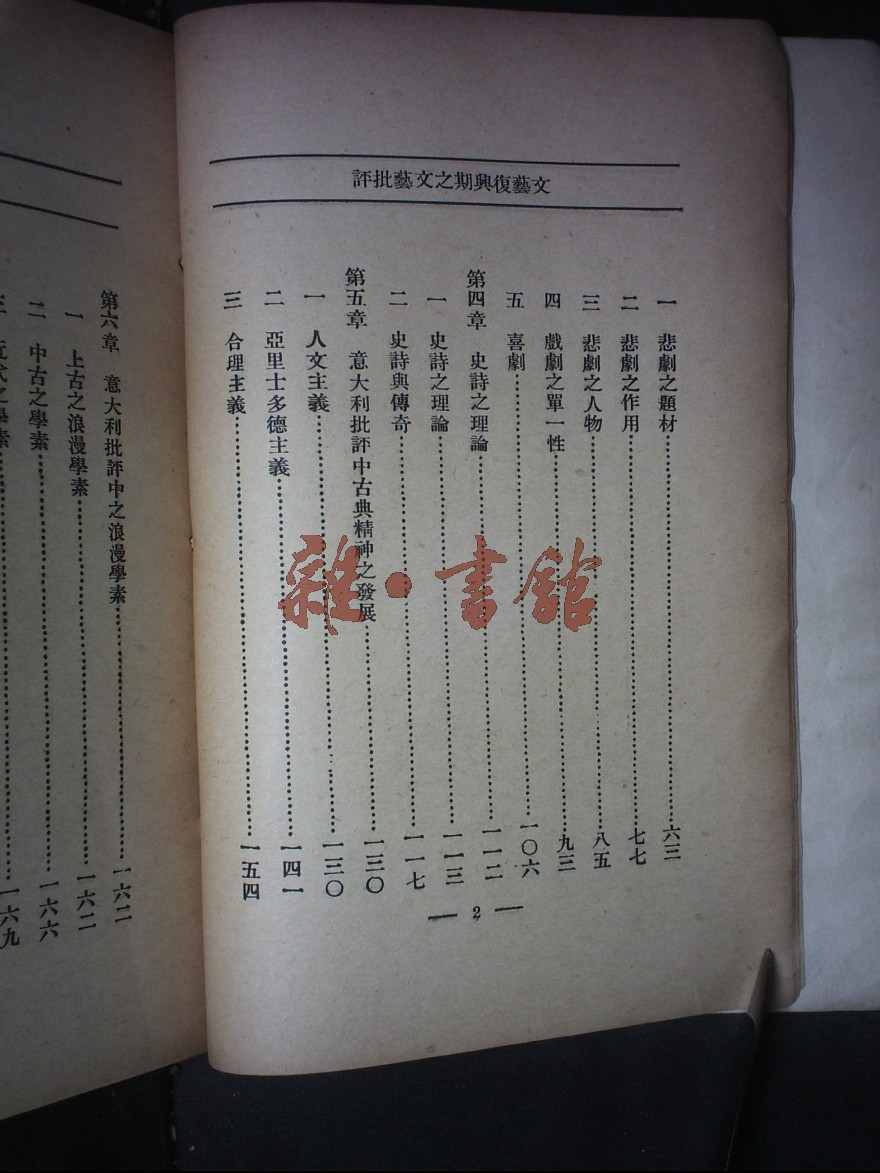 評批藝文之期興復藝文
一 悲劇之題材 六三
二 悲劇之作用 七七
三 悲劇之人物 八五
四 戲劇之單一性 九三
五 喜劇 一〇六
第四章 史詩之理論 一一二
一 史詩之理論 一一三
二 史詩與傳奇 一一七
第五章 意大利批評中古典精神之發展 一三〇
一 人文主義 一三〇
二 亞里士多德主義 一四一
三 合理主義 一五四
— 2 —
第六章 意大利批評中之浪漫學素 一六二
一 上古之浪漫學素 一六二
二 中古之學素 一六六
之學素 一六九
雜·書館